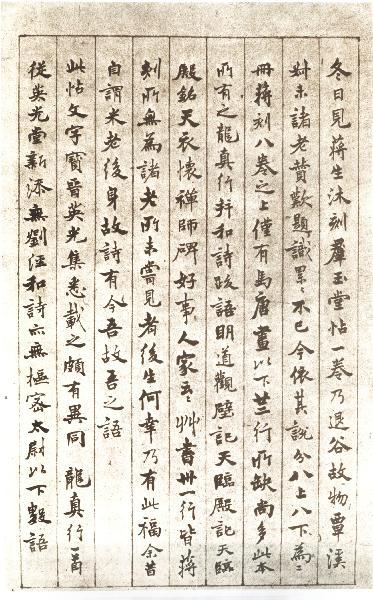 冬日見蔣生沐刻羣玉堂帖一卷乃退谷故物覃溪
對未諸老贊歎題識累〻不已今依其說分八上八下為二
冊蔣刻八卷之上僅有馬唐畫以下廿三行所缺尚多此本
所有之龍真行并和詩跋語明道觀壁記天臨殿記天臨
殿銘天衣懷禪師碑好事人家云〻艸書卅一行皆蔣
刻所無為諸老所未嘗見者後生何幸乃有此福余昔
自謂米老後身故詩有今吾故吾之語
此帖文字寶晉英光集悉載之頗有異同龍真行一首
從英光堂新添無劉涇和詩亦無樞密太尉以下數語